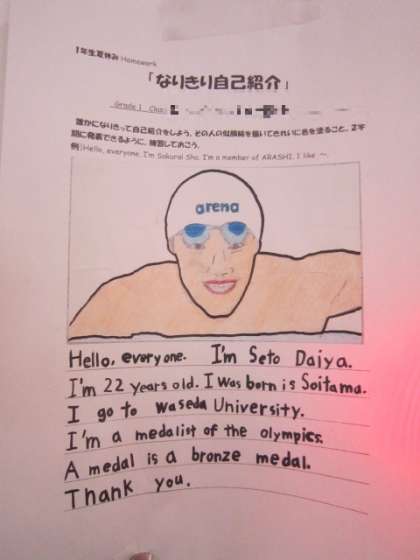 1年生夏休み Homework
「なりきり自己紹介」
Grade 1 Class
誰かになりきって自己紹介をしよう。その人の似顔絵を描いてきれいに色を塗ること。2学
期に発表できるように、練習しておこう。
例)Hello, everyone. I'm Sakurai Sho. I'm a member of ARASHI. I like 〜.
arena
Hello, everyone. I'm Seto Daiya.
I'm 22 years old. I was born is Soitama.
I go to waseda University.
I'm a medalist of the olympics.
A medal is a bronze medal.
Thank you.